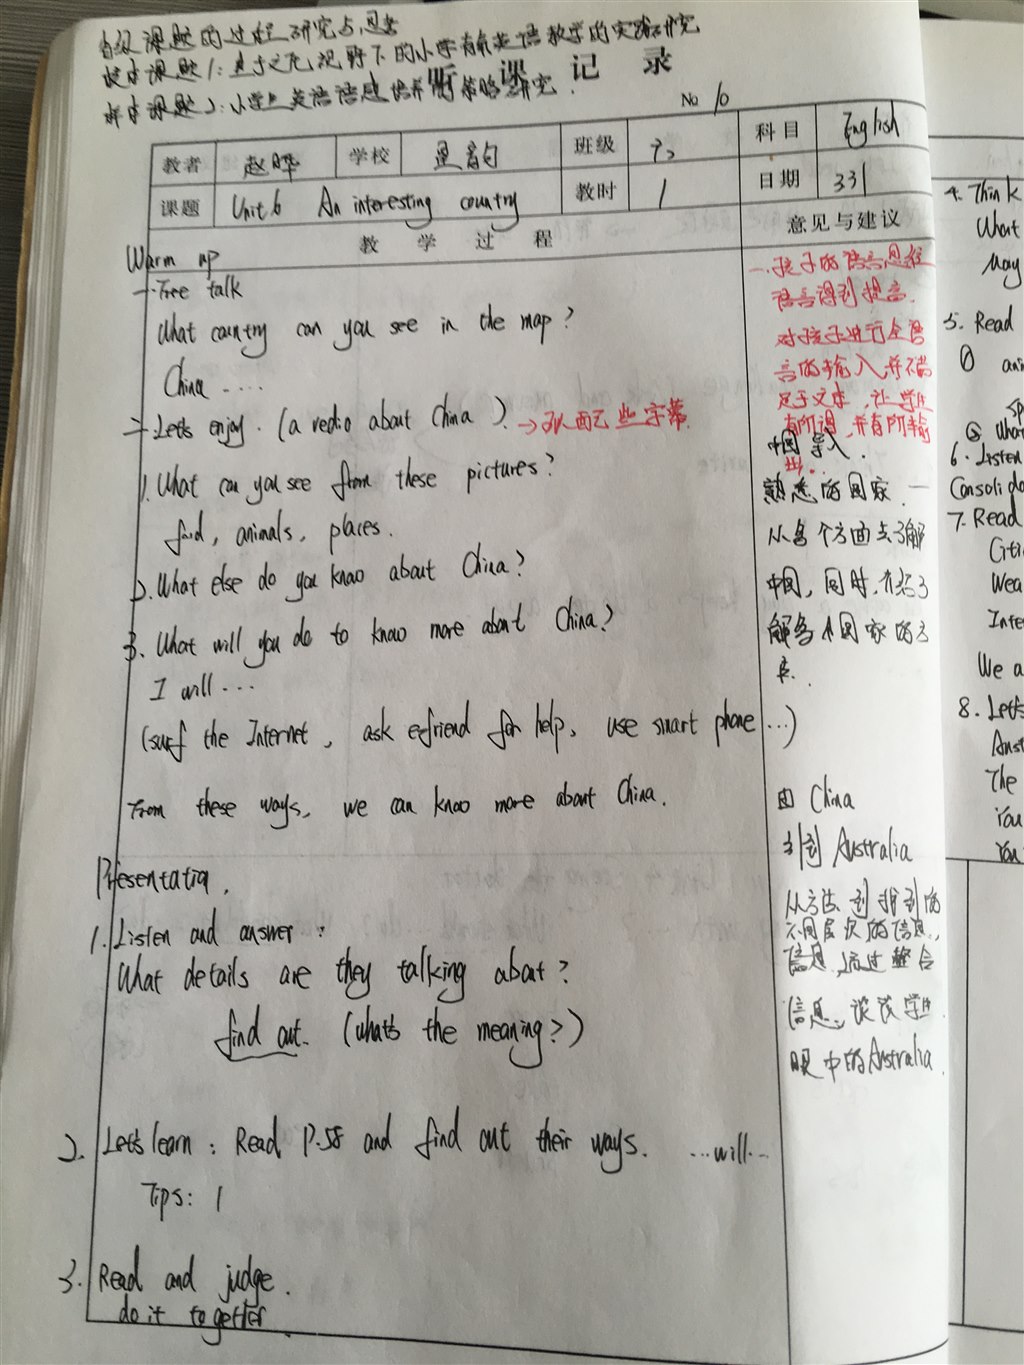 省级课题的过程研究与思考
课题1：基于文化视野下的小学英语教学的实践研究
课题2：小学生英语语感培养的策略研究.
听 课 记 录
No 10
教者 赵晔 学校 星韵 班级 科目 English
课题 Unit 6 An interesting country 教时 1 日期 331
教 学 过 程 意见与建议
Warm up
一. Free talk
What country can you see in the map?
China ....
二. Let's enjoy. (a vedio about China) → 可以配一些字幕
1. What can you see from these pictures?
food, animals, places.
2. What else do you know about China?
3. What will you do to know more about China?
I will ...
(surf the Internet, ask e-friend for help, use smart phone ...)
From these ways, we can know more about China.
Presentation.
1. Listen and answer:
What details are they talking about?
find out. (what's the meaning?)
2. Let's learn: Read P.58 and find out their ways. ...will...
Tips: 1
3. Read and judge.
do it together
一. 孩子的语言思维
语言得到提高.
对孩子进行全语
言的输入,并不满
足于文本, 让学生
有所得,并有所输
出。
中国导入.
熟悉的国家.一
从各个方面去了解
中国, 同时, 介绍了
解各个国家的方
式.
由 China
引到 Australia
从方法 到 找到的
不同层次的信息,
信息,通过整合
信息, 谈谈学生
眼中的Australia.
4. Think
What
May
5. Read
①
What
6. Listen
Consolid
7. Read
Citi
Wea
Inte
We a
8. Let's
Aust
The
You
You